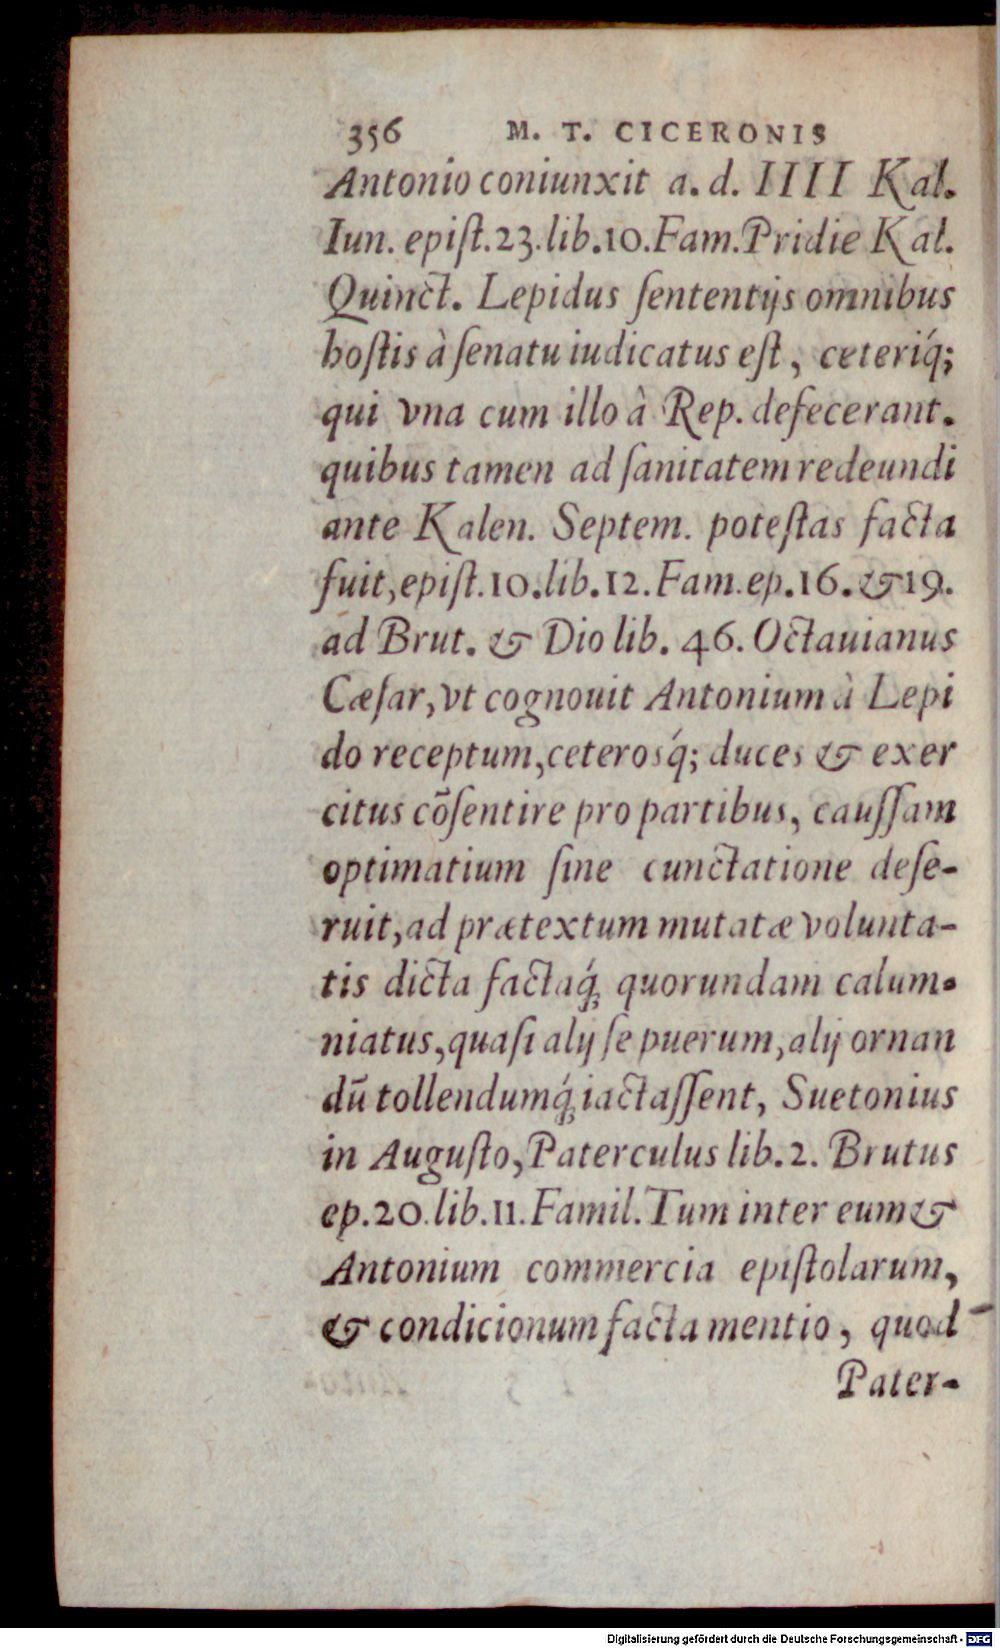 356 M. T. CICERONIS
Antonio coniunxit a. d. IIII Kal.
Iun. epiſt. 23. lib. 10. Fam. Pridie Kal.
Quinct. Lepidus ſententijs omnibus
hoſtis à ſenatu iudicatus eſt, ceteriq́;
qui vna cum illo à Rep. defecerant.
quibus tamen ad ſanitatem redeundi
ante Kalen. Septem. poteſtas facta
fuit, epiſt. 10. lib. 12. Fam. ep. 16. & 19.
ad Brut. & Dio lib. 46. Octauianus
Cæſar, vt cognouit Antonium à Lepi
do receptum, ceterosq́; duces & exer
citus cōſentire pro partibus, cauſſam
optimatium ſine cunctatione deſe-
ruit, ad prætextum mutatæ volunta-
tis dicta factaq́; quorundam calum-
niatus, quaſi alij ſe puerum, alij ornan
dū tollendumq́; iactaſſent, Suetonius
in Auguſto, Paterculus lib. 2. Brutus
ep. 20. lib. 11. Famil. Tum inter eum &
Antonium commercia epiſtolarum,
& condicionum facta mentio, quod
Pater-
Digitalisierung gefördert durch die Deutsche Forschungsgemeinschaft - DFG